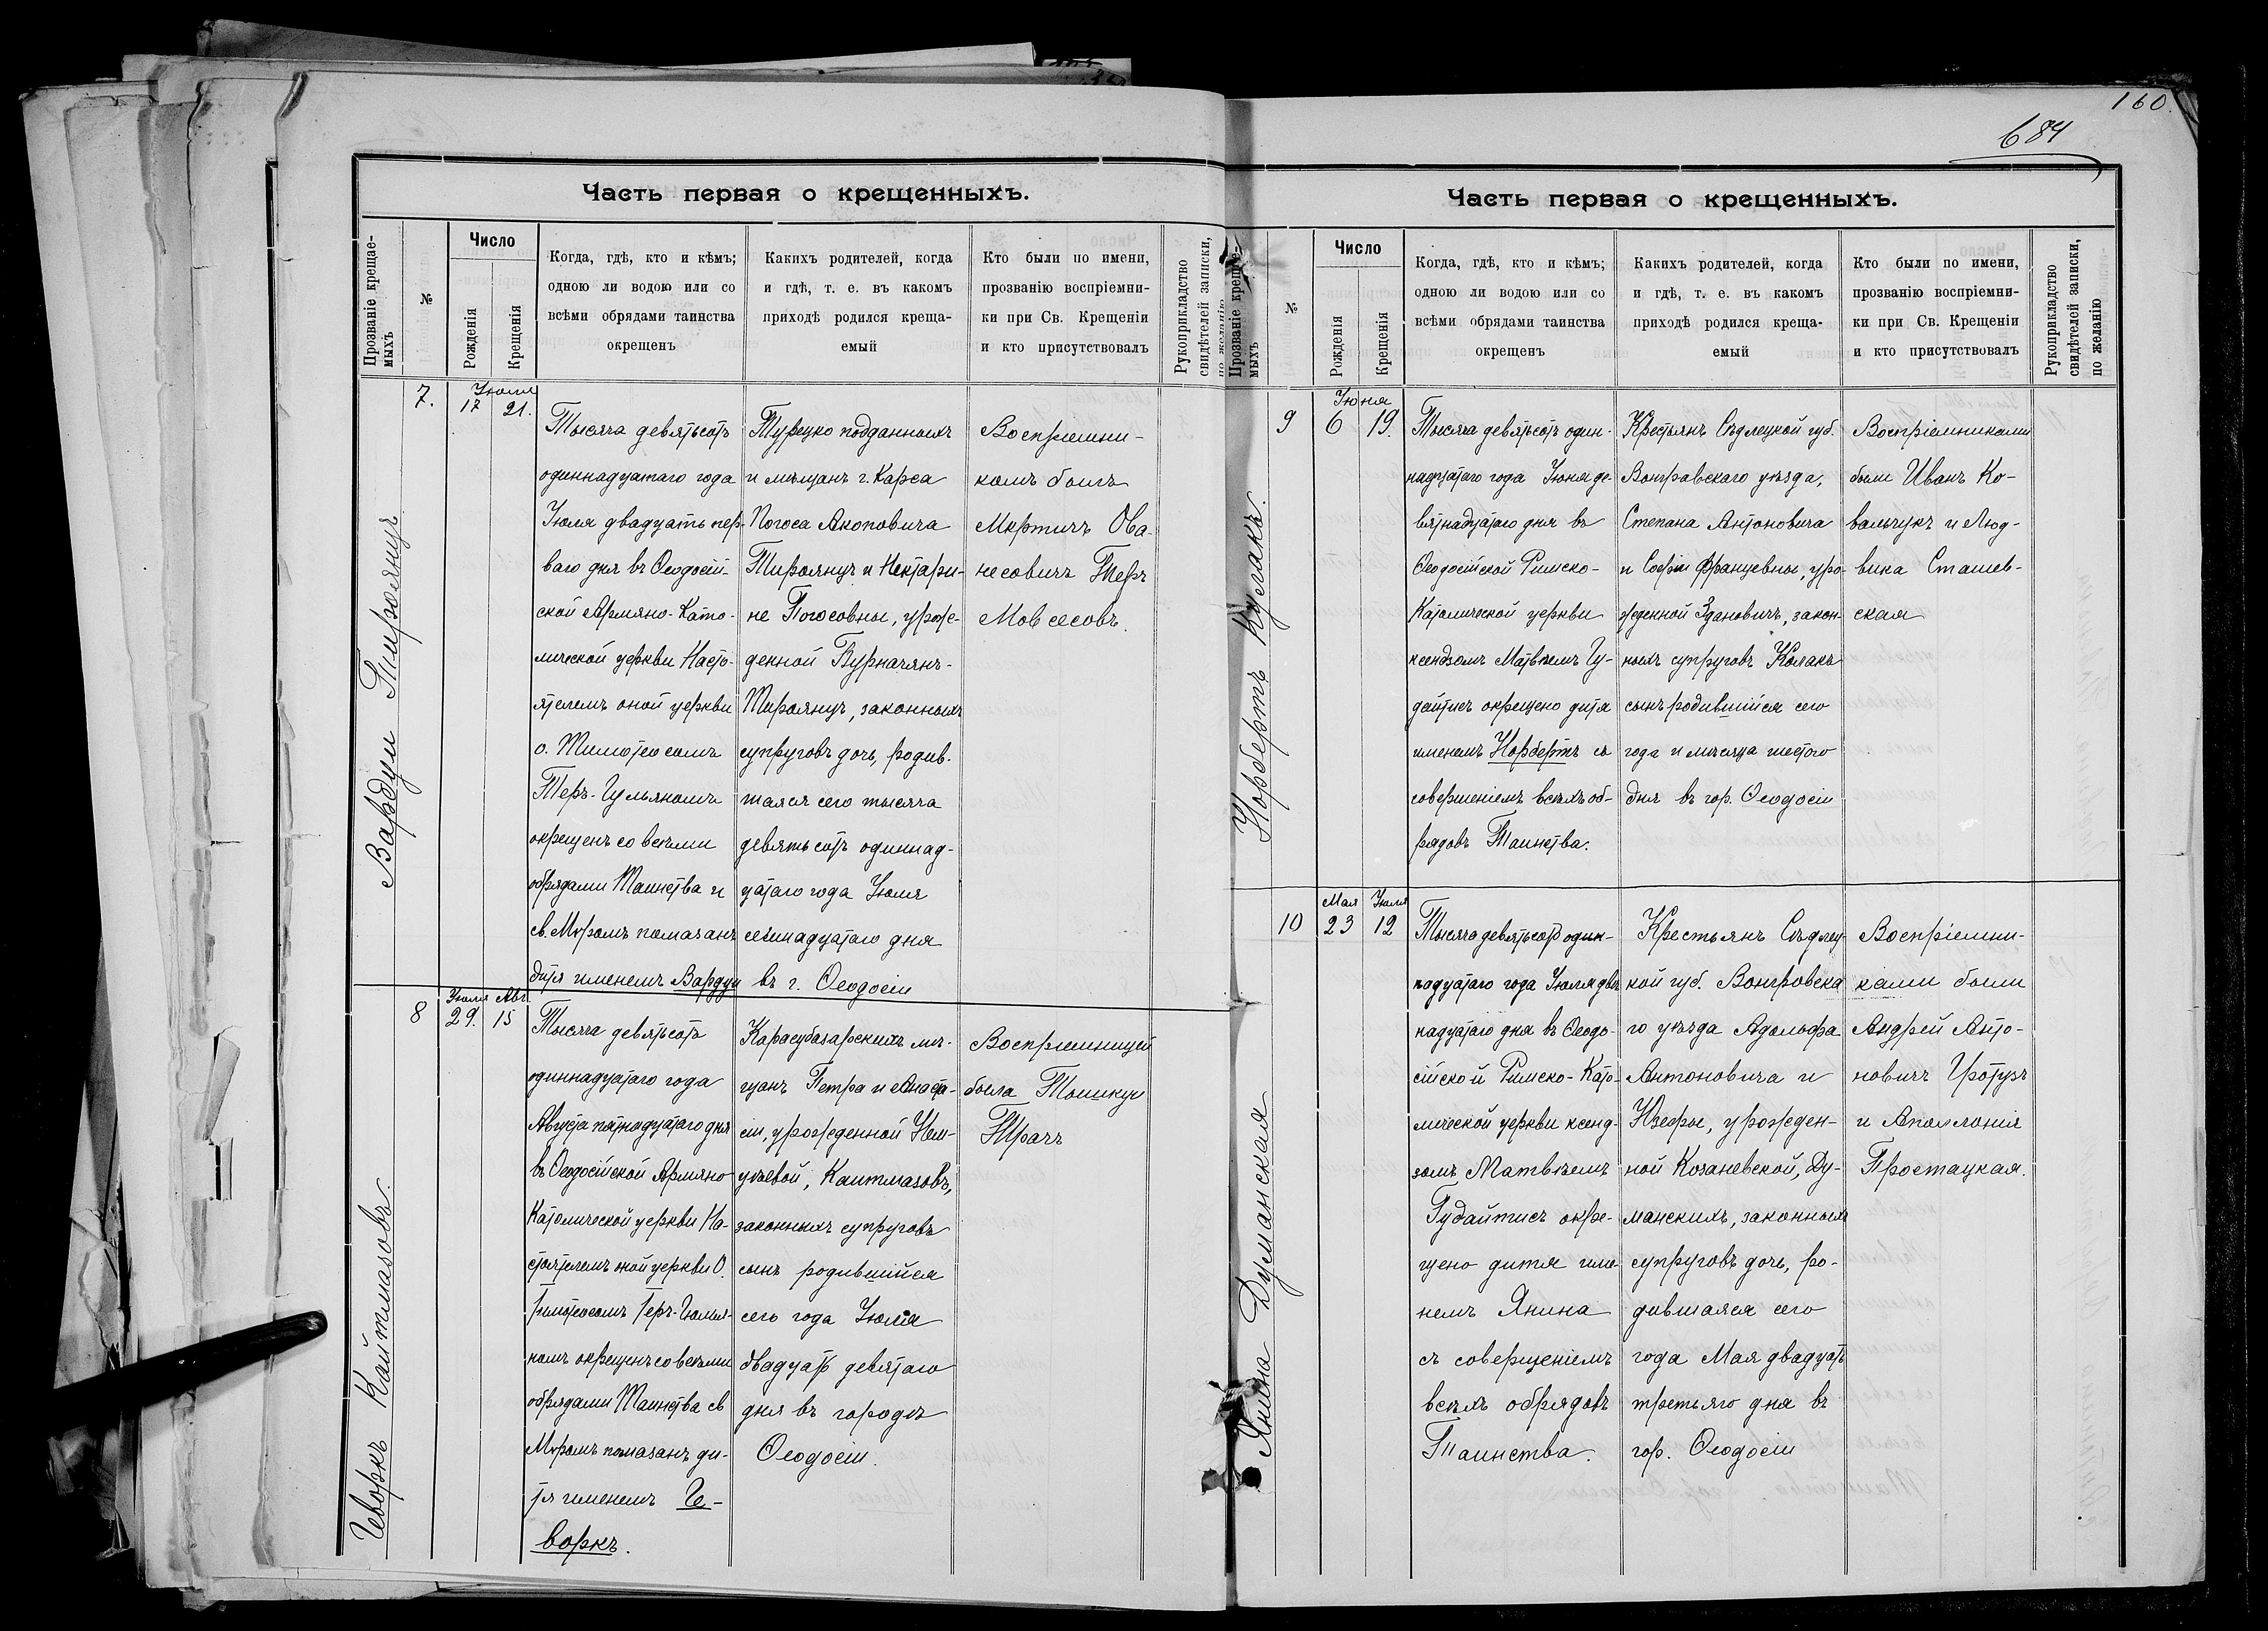 160.
684
Часть первая о крещенныхъ.
Прозваніе крещае-
мыхъ
№
Число
Рожденія
Крещенія
Когда, гдѣ, кто и кѣмъ;
одною ли водою или со
всѣми обрядами таинства
окрещенъ
Какихъ родителей, когда
и гдѣ, т. е. въ какомъ
приходѣ родился креща-
емый
Кто были по имени,
прозванію воспріемни-
ки при Св. Крещеніи
и кто присутствовалъ
Рукоприкладство
свидѣтелей записки,
по желанію
Вардуи Тироянцъ
7.
Іюля
17
21.
Тысяча девятьсотъ
одиннадцатаго года
Іюля двадцать пер-
ваго дня въ Ѳеодосій-
ской Армяно-Като-
лической церкви Насто-
ятелемъ оной церкви
о. Тимотеосомъ
Теръ-Гульяномъ
окрещенъ со всѣми
обрядами Таинства и
св. Мѵромъ помазанъ
дитя именемъ Вардуи
Турецко подданныхъ
и мѣщанъ г. Карса
Погоса Акоповича
Тироянцъ и Нектари-
не Погосовны, урож-
денной Бурначянъ-
Тироянцъ, законныхъ
супруговъ дочь, родив-
шаяся сего тысяча
девятьсотъ одиннад-
цатаго года Іюля
семнадцатаго дня
въ г. Ѳеодосіи
Воспріемни-
комъ былъ
Мкртичъ Ова-
несовичъ Теръ
Мовсесовъ.
Геворкъ Кайтмазовъ.
8
Іюля
Авг.
29.
15
Тысяча девятьсотъ
одиннадцатаго года
Августа пятнадцатаго дня
въ Ѳеодосійской Армяно
Католической церкви На-
стоятелемъ оной церкви О.
Тимотеосомъ Теръ-Гюлья-
номъ окрещенъ со всѣми
обрядами Таинства св
Мѵромъ помазанъ ди-
тя именемъ Ге-
воркъ.
Карасубазарскихъ мѣ-
щанъ Петра и Анаста-
сіи, урожденной Нем-
цовой, Каитмазовъ,
законныхъ супруговъ
сынъ родившійся
сего года Іюля
двадцать девятаго
дня въ городѣ
Ѳеодосіи.
Воспріемницей
была Тошкуи
Трачъ
Часть первая о крещенныхъ.
Прозваніе крещае-
мыхъ
№
Число
Рожденія
Крещенія
Когда, гдѣ, кто и кѣмъ;
одною ли водою или со
всѣми обрядами таинства
окрещенъ
Какихъ родителей, когда
и гдѣ, т. е. въ какомъ
приходѣ родился креща-
емый
Кто были по имени,
прозванію воспріемни-
ки при Св. Крещеніи
и кто присутствовалъ
Рукоприкладство
свидѣтелей записки,
по желанію
Норбертъ Кулакъ.
9
Іюня
6
19.
Тысяча девятьсотъ один-
надцатаго года Іюня де-
вятнадцатаго дня въ
Ѳеодосійской Римско-
Католической церкви
ксендзомъ Матвѣемъ Гу-
дайтисъ окрещено дитя
именемъ Норбертъ съ
совершеніемъ всѣхъ об-
рядовъ Таинства.
Крестьянъ Сѣдлецкой губ.
Вонгравскаго уѣзда,
Степана Антоновича
и Софіи Францевны, уро-
жденной Здановичъ, закон-
ныхъ супруговъ Колакъ
сынъ родившійся сего
года и мѣсяца шестого
дня въ гор. Ѳеодосіи
Воспріемниками
были Иванъ Ко-
вальчукъ и Люд-
вика Сташев-
ская
Янина Думанская
10
Мая
Іюля
23
12
Тысяча девятьсотъ один-
надцатаго года Іюля двѣ-
надцатаго дня въ Ѳеодо-
сійской Римско-Като-
лической церкви ксенд-
зомъ Матвѣемъ
Гудайтисъ окре-
щено дитя име-
немъ Янина
съ совершеніемъ
всѣхъ обрядовъ
Таинства.
Крестьянъ Сѣдлец-
кой губ. Вонгровска
го уѣзда Адольфа
Антоновича и
Юзефы, урожден-
ной Козаневской, Ду-
манскихъ, законныхъ
супруговъ дочь, ро-
дившаяся сего
года Мая двадцать
третьяго дня въ
гор. Ѳеодосіи
Воспріемни-
ками были
Андрей Анто-
новичъ
и Аполлонія
Простацкая.